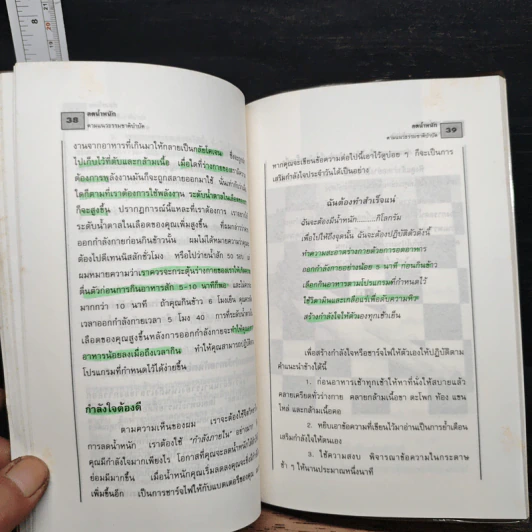 8
20
21
38
ลดน้ำหนัก
ตามแนวธรรมชาติบำบัด
งานจากอาหารที่เกินมาให้กลายเป็นกลัยโคเจน
ไปเก็บไว้ที่ตับและกล้ามเนื้อ เมื่อใดที่ร่างกาย
ต้องการพลังงานมันก็จะถูกสลายมาใช้
ใดก็ตามที่เราต้องการใช้พลังงาน ระดับน้ำตาลในเลือด
ก็จะสูงขึ้น ปรากฏการณ์นี้แหละที่เราต้องการ
ระดับน้ำตาลในเลือดของคุณเพิ่มสูงขึ้น
ออกกำลังกายก่อนกินข้าวนั้น ผมไม่ได้หมายความว่าคุณ
ต้องไปตีเทนนิสสักชั่วโมง หรือไปว่ายน้ำสัก 50
ผมหมายความว่าเราควรจะกระตุ้นร่างกายของเราให้เกิด
ตื่นตัวก่อนการกินอาหารสัก 5-10 นาทีก็พอ
มากกว่า 10 นาที ถ้าคุณกินข้าว 6 โมงเย็น
เวลาออกกำลังกายเวลา 5 โมง 40
เลือดของคุณสูงขึ้นหลังการออกกำลังกายจะทำให้คุณ
อาหารน้อยลงเมื่อถึงเวลากิน ทำให้คุณสามารถปฏิบัติ
โปรแกรมที่กำหนดไว้ได้ง่ายขึ้น
กำลังใจต้องดี
ตามความเห็นของผม เราจะต้องใช้จิต
การลดน้ำหนัก เราต้องใช้ "กำลังภายใน"
คุณมีกำลังใจมากเพียงไร โอกาสที่คุณจะลดน้ำหนักได้
ย่อมมีมากขึ้น เมื่อน้ำหนักคุณเริ่มลดลงคุณจะยิ่ง
เพิ่มขึ้นอีก เป็นการชาร์จไฟให้กับแบตเตอรี่ของคุณ
ลดน้ำหนัก
ตามแนวธรรมชาติบำบัด
39
หากคุณจะเขียนข้อความต่อไปนี้เอาไว้ดูบ่อย ๆ ก็จะเป็นการ
เสริมกำลังใจประจำวันได้เป็นอย่าง
ฉันต้องทำสำเร็จแน่
ฉันจะต้องมีน้ำหนัก........กิโลกรัม
เพื่อไปให้ถึงจุดนั้น ฉันจะต้องปฏิบัติตัวดังนี้
ทำความสะอาดร่างกายด้วยการอดอาหาร
ออกกำลังกายอย่างน้อย 5 นาที ก่อนกินข้าว
เลือกกินอาหารตามโปรแกรมที่กำหนดไว้
ใช้วิตามินและเกลือแร่เพื่อดับความหิว
สร้างกำลังใจให้ตัวเองทุกเช้าเย็น
เพื่อสร้างกำลังใจหรือชาร์จไฟให้ตัวเองให้ปฏิบัติตาม
คำแนะนำข้างใต้นี้
1. ก่อนอาหารเช้าทุกเช้าให้หาที่นั่งให้สบายแล้ว
คลายเครียดทั่วร่างกาย คลายกล้ามเนื้อขา ตะโพก ท้อง แขน
ไหล่ และกล้ามเนื้อคอ
2. หยิบเอาข้อความที่เขียนไว้มาอ่านเป็นการย้ำเตือน
เสริมกำลังใจให้ตนเอง
3. ใช้ความสงบ พิจารณาข้อความในกระดาษ
ช้า ๆ ให้นานประมาณหนึ่งนาที